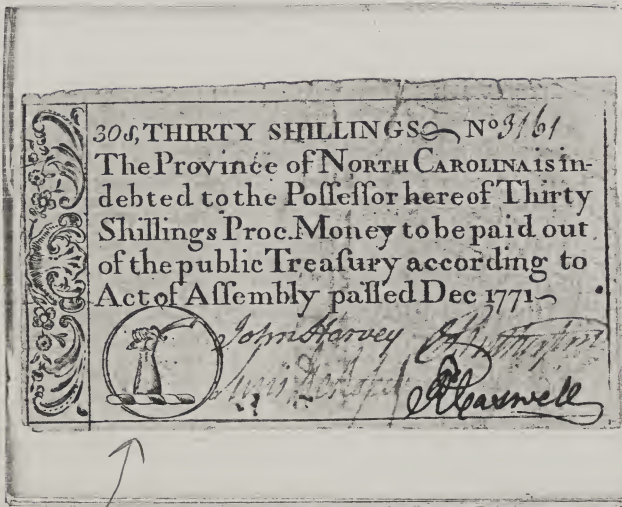 30s, THIRTY SHILLINGS No 3161
The Province of NORTH CAROLINA is in-
debted to the Poſſeſſor here of Thirty
Shillings Proc. Money to be paid out
of the public Treaſury according to
Act of Aſſembly paſſed Dec 1771
John Harvey
RCaswell